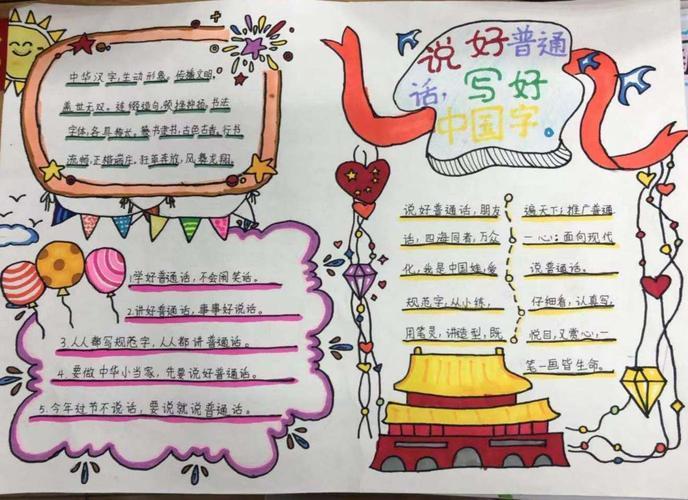 说好普通
话,写好
中国字。
中华汉字,生动形象,传播文明,
盖世无双。造句,顿挫抑扬,书法
字体,各具特长,篆书隶书,古色古香,行书
流畅,正楷端庄,狂草奔放,凤舞龙翔。
1.学好普通话,不会闹笑话。
2.讲好普通话,事事好说话。
3.人人都写规范字,人人都讲普通话。
4.要做中华小当家,先要说好普通话。
5.今年过节不说话,要说就说普通话。
说好普通话,朋友
遍天下;推广普通
话,四海同音,万众
一心;面向现代
化,我是中国娃,爱
说普通话。
规范字,从小练,
仔细看,认真写,
用笔灵,讲造型,既
悦目,又赏心,一
笔一画皆生命。